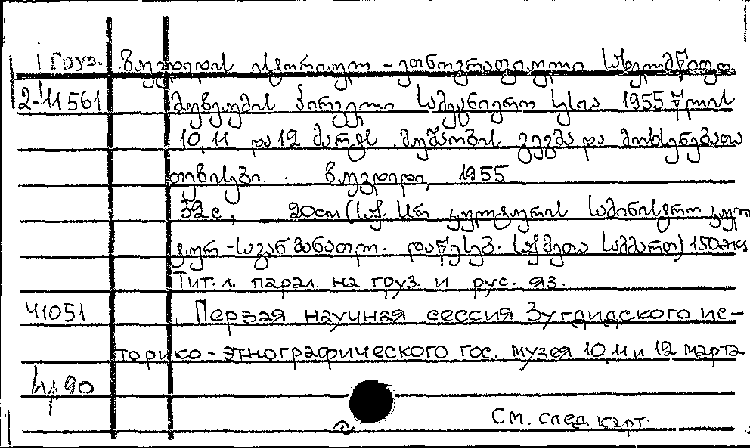 Груз. ზუგდიდის ისტორიულ-ეთნოგრაფიული სახელმწიფო
2-11561 მუზეუმის პირველი სამეცნიერო სესია 1955 წლის
10, 11 და 12 მარტს. მუშაობის გეგმა და მოხსენებათა
თეზისები. ზუგდიდი, 1955
32с. 20см (საქ. სსრ კულტურის სამინისტრო კულ
ტურ-საგანმანათლ. დაწესებ. საქმეთა სამმართ.) 150
Тит. л. парал. на груз. и рус. яз.
41051 Первая научная сессия Зугдидского ис-
торико-этнографического гос. музея 10, 11 и 12 марта
90
См. след. карт.